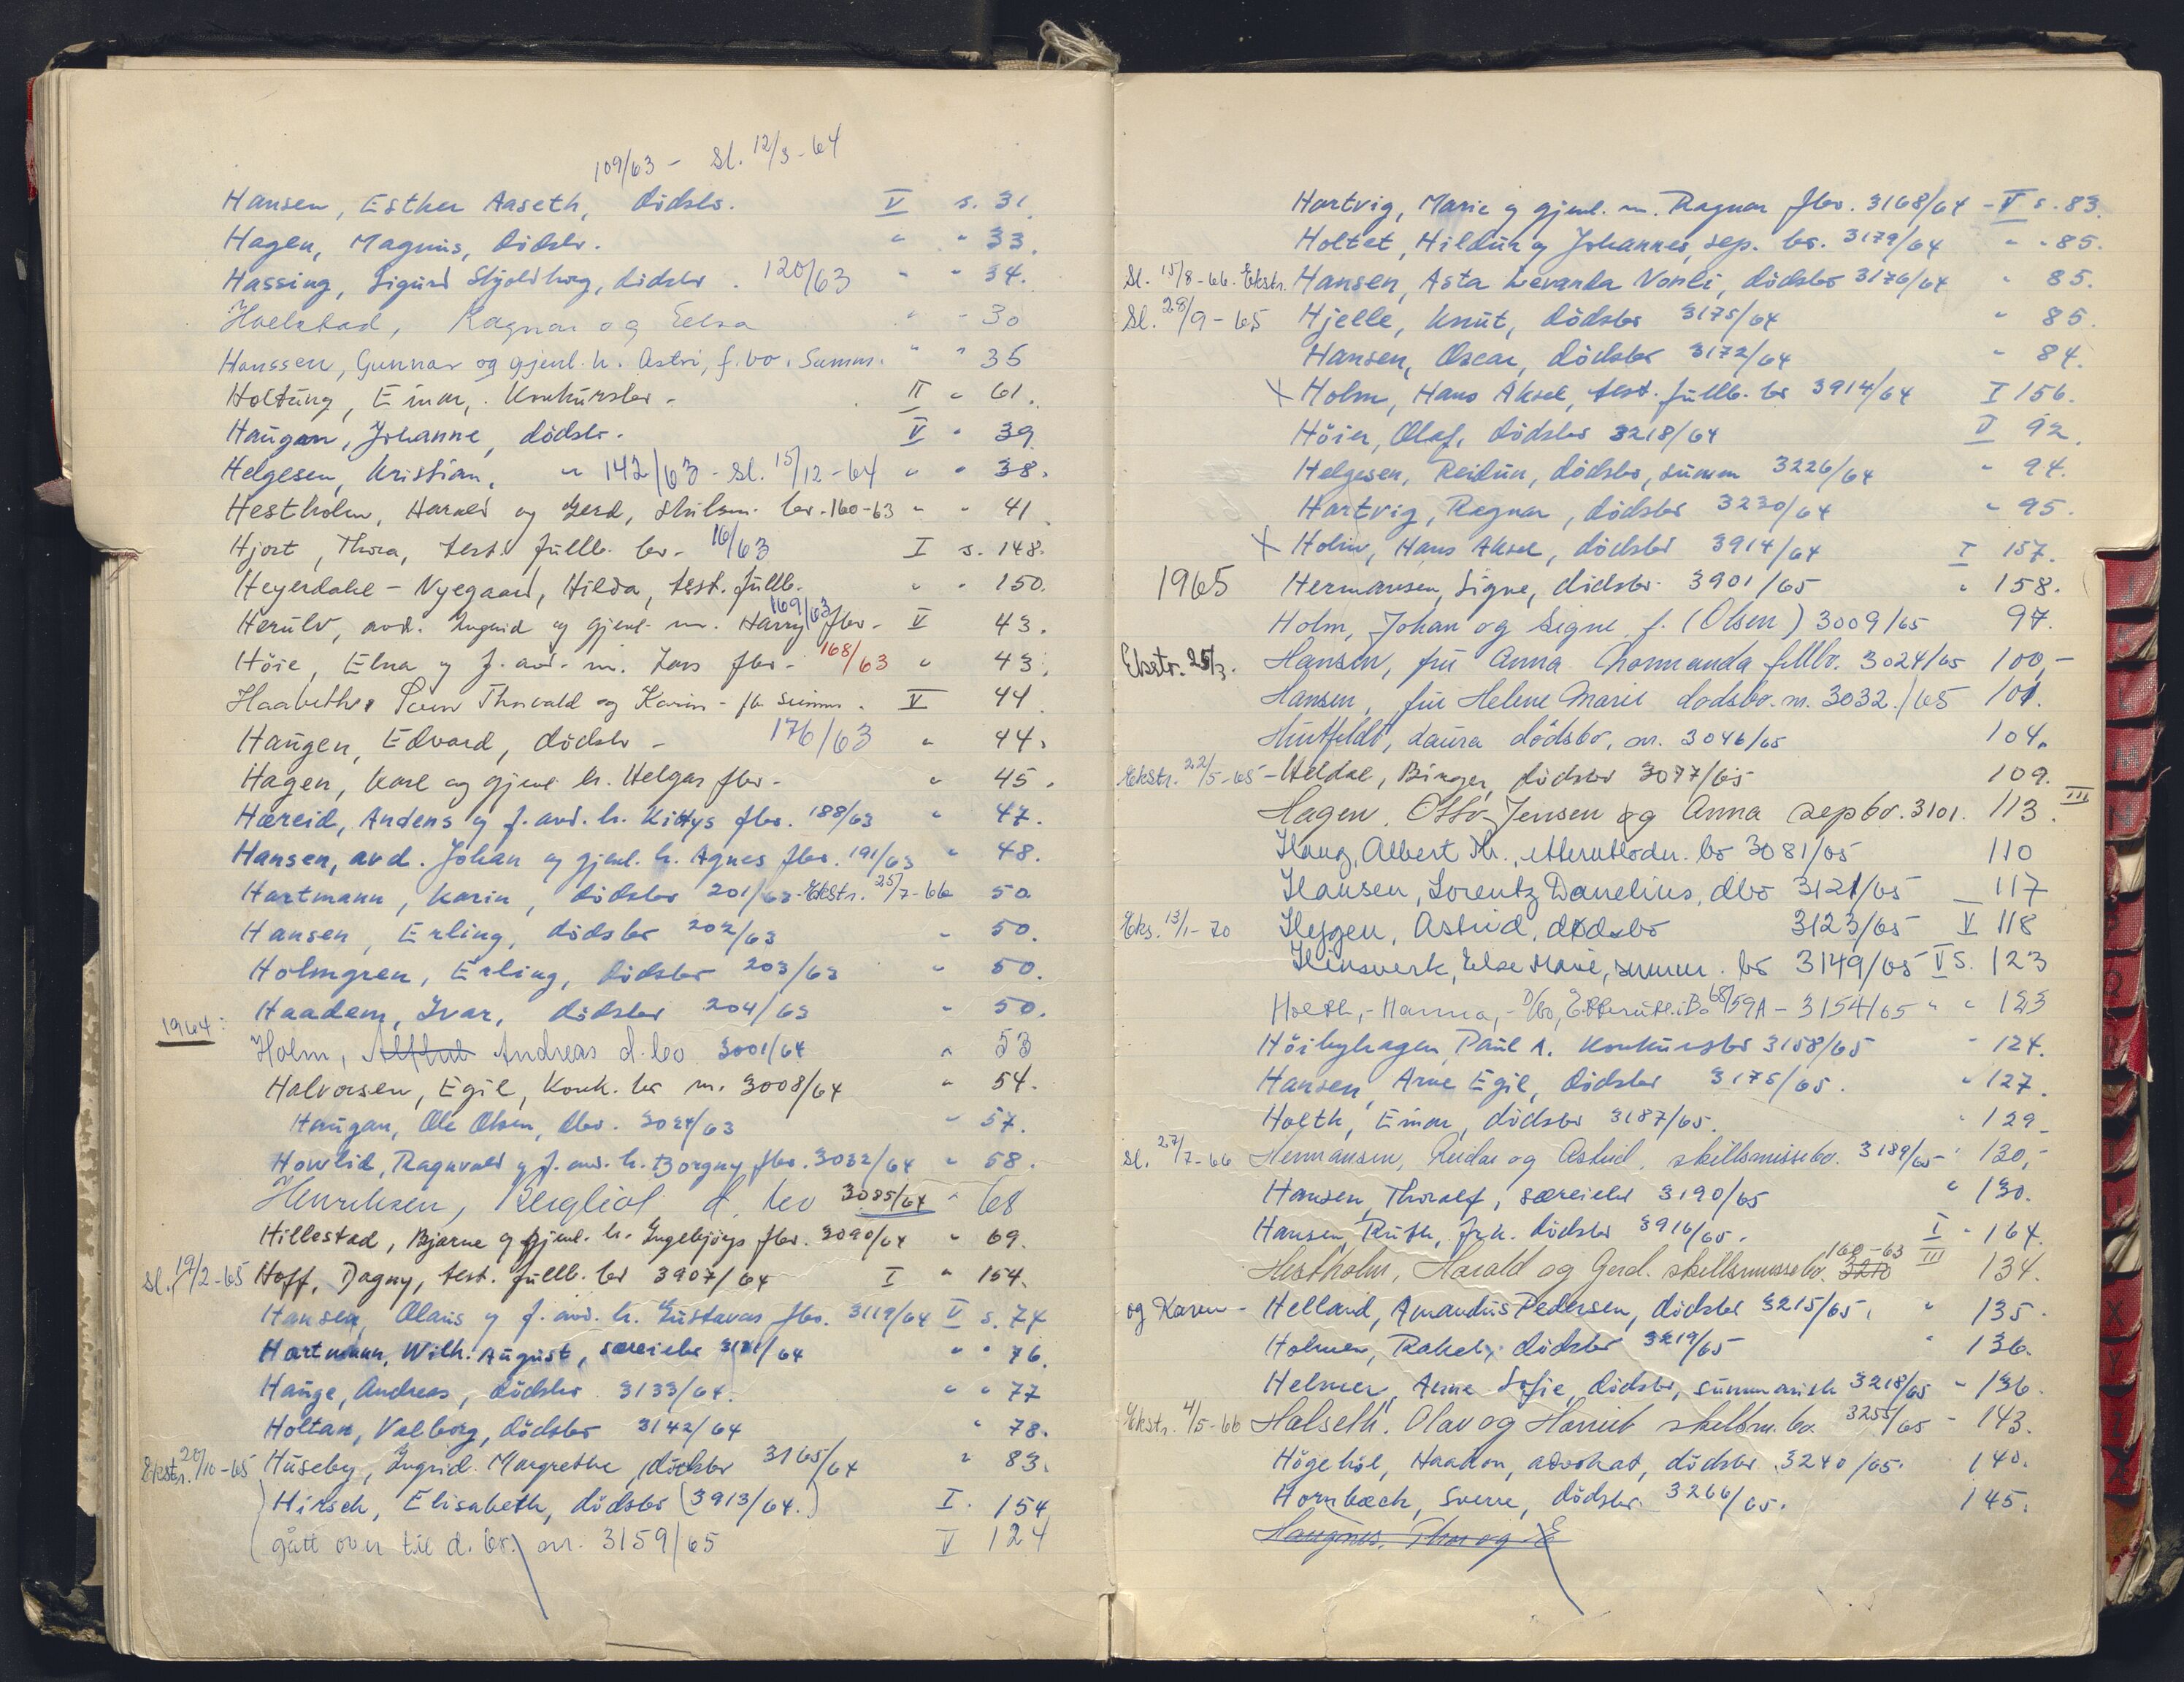 109/63 - Sl. 12/3-64
Hansen, Esther Aaseth, dödsbo. V s. 31.
Hagen, Magnus, dödsbo. " " 33.
Hassing, Sigurd Skjoldborg, dödsbo. 120/63 " " 34.
Hoelstad, Ragnar og Eelsa " " 30
Hanssen, Gunnar og gjenl. h. Astri, f.bo. Summ. " " 35
Holtung, Einar, Konkursbo. II " 61.
Haugan, Johanne, dödsbo. V " 39
Helgesen, Kristian, " 142/63 - Sl. 15/12-64 " " 38.
Hestholm, Harald og Gerd, skilsm. bo. 160-63 " " 41.
Hjort, Thora, test. fullb. bo. 16/63 I s. 148.
Heyerdahl-Nyegaard, Hilda, test. fullb. " " 150.
Herulv, avd. Ingrid og gjenl. m. Harry fbo. 169/63 V 43.
Höie, Elna og f. avd. m. Lars fbo. 168/63 " 43.
Haabeth, Thorvald og Karin - fb summ. V 44
Haugen, Edvard, dödsbo - 176/63 " 44.
Hagen, Karl og gjenl. h. Helgas fbo. " 45.
Hæreid, Anders og f. avd. h. Kittys fbo. 188/63 " 47.
Hansen, avd. Johan og gjenl. h. Agnes fbo. 191/63 " 48.
Hartmann, Karin, dödsbo 201/63 - Ekstr. 25/7-66 50
Hansen, Erling, dödsbo 202/63 " 50.
Holmgren, Erling, dödsbo 203/63 " 50.
Haadem, Ivar, dödsbo 204/63 " 50.
1964:
Holm, Andreas d.bo 3001/64 " 53
Halvorsen, Egil, Konk. bo nr. 3008/64 " 54.
Haugan, Ole Olsen, dbo. 3024/63 " 57.
Hovlid, Ragnvald og f. avd. h. Borgny fbo. 3032/64 " 58.
Henriksen, Bergliot d. bo 3085/64 " 68
Hillestad, Bjarne og gjenl. h. Ingebjörgs fbo. 3090/64 " 69.
Sl. 19/2-65 Hoff, Dagny, test. fullb. bo 3907/64 I " 154.
Hansen, Olaus og f. avd. h. Gustavas fbo. 3119/64 V s. 74
Hartmann, Wilh. August, særeiebo 3121/64 " " 76.
Hauge, Andreas, dödsbo 3133/64. " " 77
Holtan, Valborg, dödsbo 3142/64 " 78.
Ekstr. 20/10-65 Huseby, Ingrid Margrethe, dödsbo 3165/64 " 83.
Hirsch, Elisabeth, dödsbo (3913/64.) I. 154
(gått over til d. bo.) nr. 3159/65 V 124
Hartvig, Marie og gjenl. m. Ragnar fbo. 3168/64 - V s. 83.
Holtet, Hildur og Johannes, sep. bo. 3179/64 " " 85.
Sl. 15/8-66. Ekstr. Hansen, Asta Levarda Vonli, dödsbo 3176/64 " 85.
Sl. 28/9-65 Hjelle, Knut, dödsbo 3175/64 " 85.
Hansen, Oscar, dödsbo 3172/64 " 84.
X Holm, Hans Aksel, test. fullb. bo 3914/64 I 156.
Höier, Olaf, dödsbo 3218/64 V 92.
Helgesen, Reidun, dödsbo, summ 3226/64 " 94.
Hartvig, Ragnar, dödsbo 3230/64 " 95.
X Holm, Hans Aksel, dödsbo 3914/64 I 157.
1965 Hermansen, Signe, dödsbo 3901/65 " 158.
Holm, Johan og Signe f. (Olsen) 3009/65 97.
Ekstr. 25/3. Hansen, fru Anna Normanda fellbo. 3024/65 100,-
Hansen, fru Helene Marie dødsbo. nr. 3032./65 101.
Huitfeldt, Laura dödsbo, nr. 3046/65 104.
Ekstr. 22/5-65 - Heldal, Birger, dödsbo 3077/65 109.
Hagen, Otto Jensen og Anna sepbo. 3101. 113. III
Haug, Albert Th., etterutlodn. bo 3081/65 110
Hansen, Lorentz Danelius, dbo 3121/65 117
Eks. 13/1-70 Heggen, Astrid, dødsbo 3123/65 V 118
Hinsverk, Else Marie, summ. bo 3149/65 V s. 123
Holth, - Hanna, - D/bo, Etterutl. i Bo 68/59A - 3154/65 " " 123
Höibyhagen, Paul A. konkursbo 3158/65 " 124.
Hansen, Arne Egil, dödsbo 3175/65. " 127.
Holth, Einar, dödsbo 3187/65. " 129
Sl. 27/7-66 Hermansen, Reidar og Astrid, skillsmissebo. 3189/65 " 130,-
Hansen, Thoralf, særeiebo 3190/65 " 130.
Hansen, Ruth, frk. dödsbo 3916/65. I " 164.
Hestholm, Harald og Gerd. skillsmissebo. 3210 160-63 III 134.
og Karen - Helland, Amandus Pedersen, dödsbo 3215/65. " 135.
Holmen, Rakel, dödsbo 3219/65 " 136.
Helmer, Anne Sofie, dödsbo, summarisk 3218/65 " 136.
Ekstr. 4/5-66 Halseth, Olav og Harriet skillsm. bo. 3255/65 - 143.
Högehöl, Haakon, advokat, dödsbo 3240/65. 140.
Hornbæck, Sverre, dödsbo. 3266/65. 145.
Haugnes, Thor og E